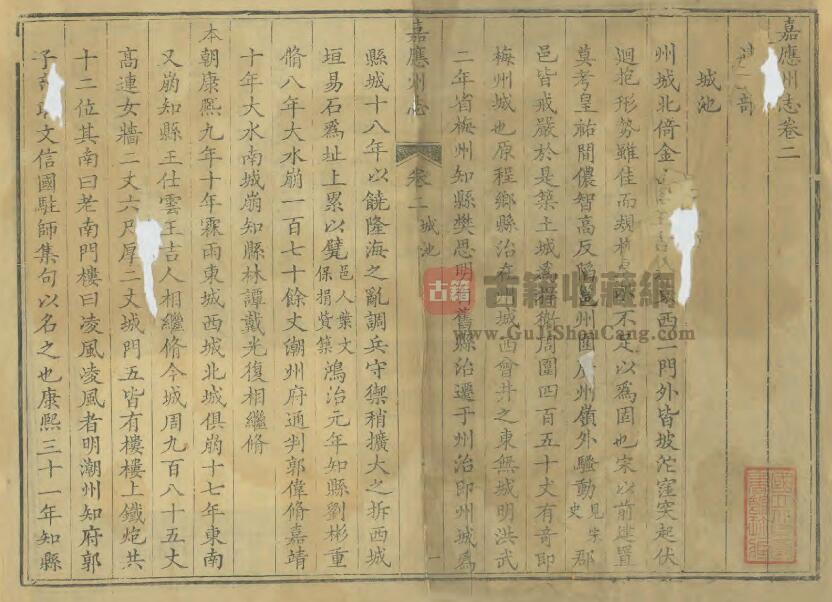 嘉應州志卷二
部
城池
州城北倚金山西二門外皆坡沱窪突起伏
迴抱形勢雖佳而規不足以爲固也宋以前建置
莫考皇祐間儂智高反陷邕州圍廣州嶺外騷動見宋史郡
邑皆戒嚴於是築土城濬符衛周圍四百五十丈有奇即
梅州城也原程鄉縣治在州城西會井之東無城明洪武
二年省梅州知縣樊思明舊縣治遷于州治即州城爲
嘉應州志 卷二 城池 一
縣城十八年以饒隆海之亂調兵守禦稍擴大之拆西城
垣易石爲址上累以甓邑人葉文保捐貲築鴻治元年知縣劉彬重
脩八年大水崩一百七十餘丈潮州府通判郭偉脩嘉靖
十年大水南城崩知縣林譚戴光復相繼脩
本朝康熙九年十年霖雨東城西城北城俱崩十七年東南
又崩知縣王仕雲王吉人相繼脩今城周九百八十五丈
高連女牆二丈六尺厚二丈城門五皆有樓樓上鐵炮共
十二位其南曰老南門樓曰凌風凌風者明潮州知府郭
子文信國駐師集句以名之也康熙三十一年知縣
古籍 古籍收藏網
www.GuJiShouCang.com